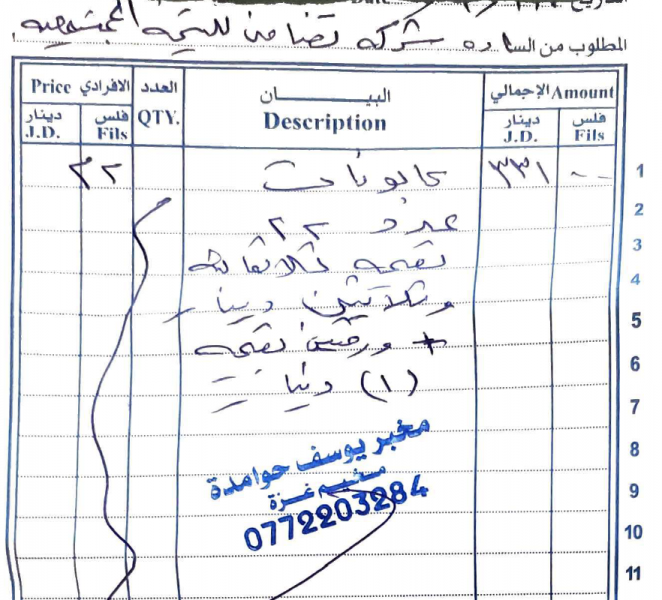 التاريخ
المطلوب من السادة شركة تضامن للتنمية المجتمعية
Price الافرادي العدد البيـــــــان الإجمالي Amount
دينار فلس QTY. Description دينار فلس
J.D. Fils J.D. Fils
٢٢ كابونات ٣٣١ -- 1
عدد ٢٢ 2
بقيمة ثلاثمائة 3
وثلاثين دينار 4
+ ورقتين بقيمة 5
(١) دينار 6
7
مخبر يوسف حوامدة 8
مخيم غزة 9
0772203284 10
11